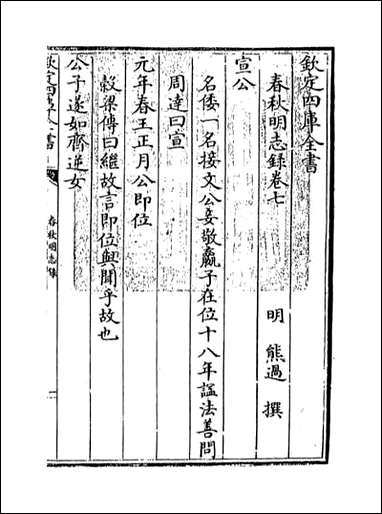 欽定四庫全書
春秋明志錄卷七
明 熊過 撰
宣公
名倭一名接文公妾敬嬴子在位十八年諡法善問
周達曰宣
元年春王正月公即位
穀梁傳曰繼故言即位與聞乎故也
公子遂如齊逆女
欽定四庫全書
春秋明志錄
一